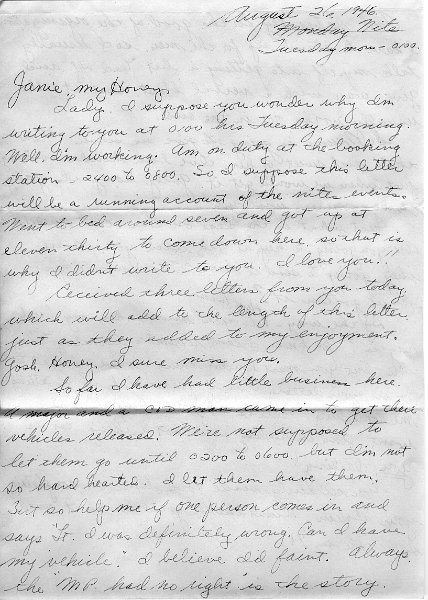 August 26, 1946.
Monday Nite
Tuesday morn - 0100.
Janie, my Honey,
Lady, I suppose you wonder why I'm
writing to you at 0100 hrs Tuesday morning.
Well, I'm working. Am on duty at the booking
station - 2400 to 0800. So I suppose this letter
will be a running account of the nite events.
Went to bed around seven and got up at
eleven-thirty to come down here, so that is
why I didn't write to you. I love you!!
Received three letters from you today
which will add to the length of this letter
just as they added to my enjoyment.
Gosh, Honey, I sure miss you.
So far I have had little business here.
A major and a CID man came in to get there
vehicles released. We're not supposed to
let them go until 0200 to 0600, but I'm not
so hard hearted. I let them have them.
But so help me if one person comes in and
says "Lt. I was definitely wrong. Can I have
my vehicle." I believe I'd faint. Always
the "MP had no right" is the story.